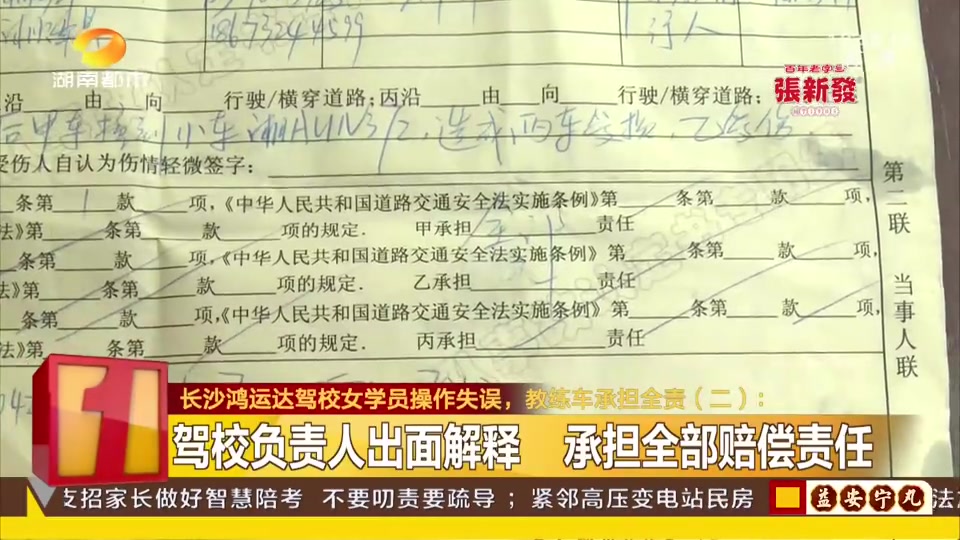 18673244599
行人
湖南都市
百年老字号
張新發
沿 由 向 行驶/横穿道路;丙沿 由 向 行驶/横穿道路;
受伤人自认为伤情轻微签字:
条第 1 款 项,《中华人民共和国道路交通安全法实施条例》第 条第 款 项,
法》第 条第 款 项的规定. 甲承担 全部 责任
条第 款 项,《中华人民共和国道路交通安全法实施条例》第 条第 款 项,
法》第 条第 款 项的规定. 乙承担 责任
条第 款 项,《中华人民共和国道路交通安全法实施条例》第 条第 款 项,
法》第 条第 款 项的规定. 丙承担 责任
第二联 当事人联
1
长沙鸿运达驾校女学员操作失误,教练车承担全责(二):
驾校负责人出面解释 承担全部赔偿责任
支招家长做好智慧陪考 不要叨责要疏导;紧邻高压变电站民房
益安宁丸